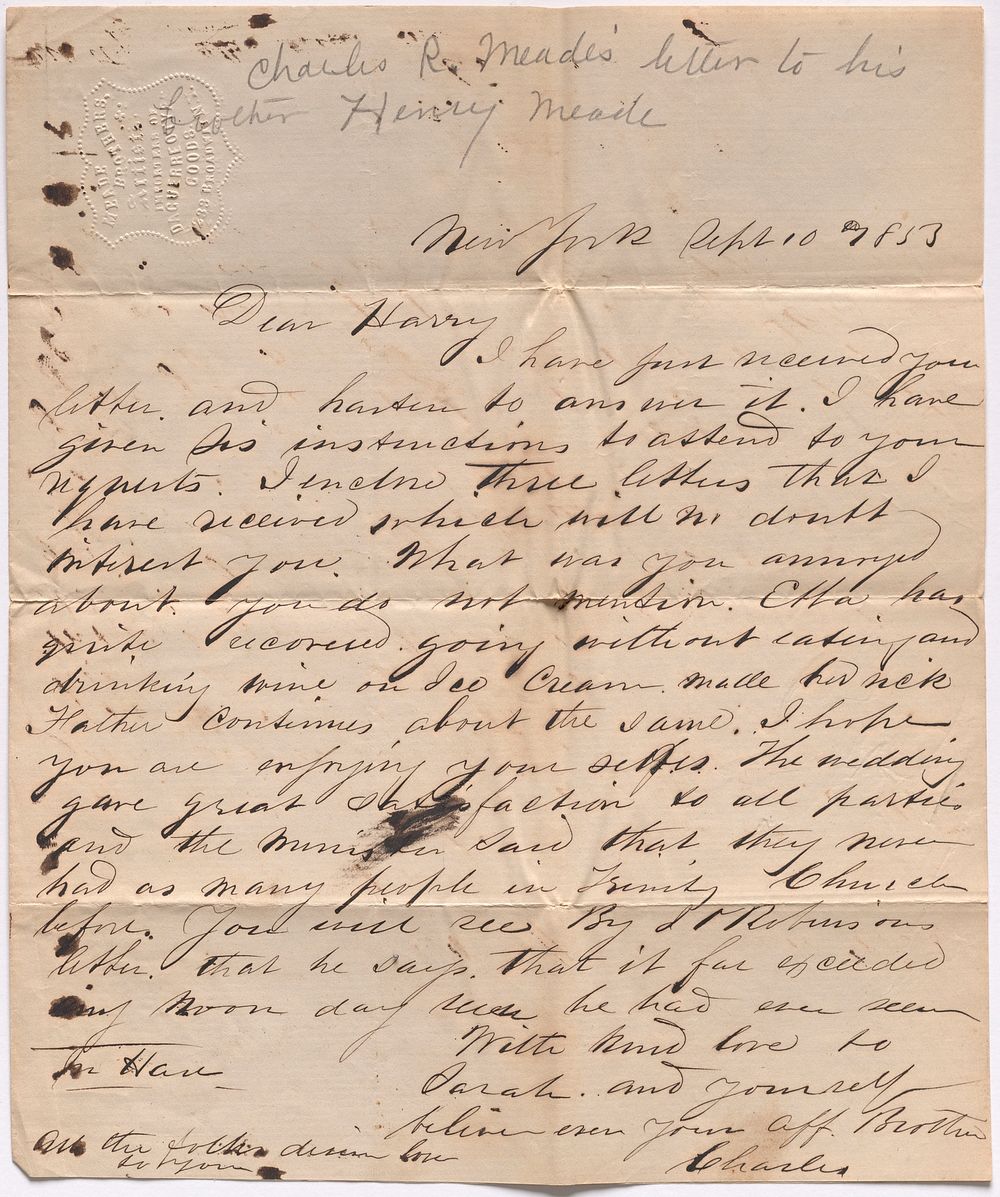 Charles R. Meade's letter to his
brother Henry Meade
MEADE BROTHERS,
Artists &
IMPORTERS OF
DAGUERREOTYPE
GOODS.
233 BROADWAY N.Y.
New York Sept 10 1853
Dear Harry
I have just received your
letter and hasten to answer it. I have
given Sis instructions to attend to your
requests. I enclose three letters that I
have received which will no doubt
interest you. What was you annoyed
about you do not mention. Etta has
quite recovered going without eating and
drinking wine on Ice Cream made her sick
Father continues about the same. I hope
you are enjoying your selves. The wedding
gave great satisfaction to all parties
and the minister said that they never
had as many people in Trinity Church
before. You will see By Robinsons
letter. that he says that it far exceeded
any noon day he had ever seen
In Haste
With kind love to
Sarah. and yourself
believe ever your aff. Brother
Charles
all the folks desire love
to you